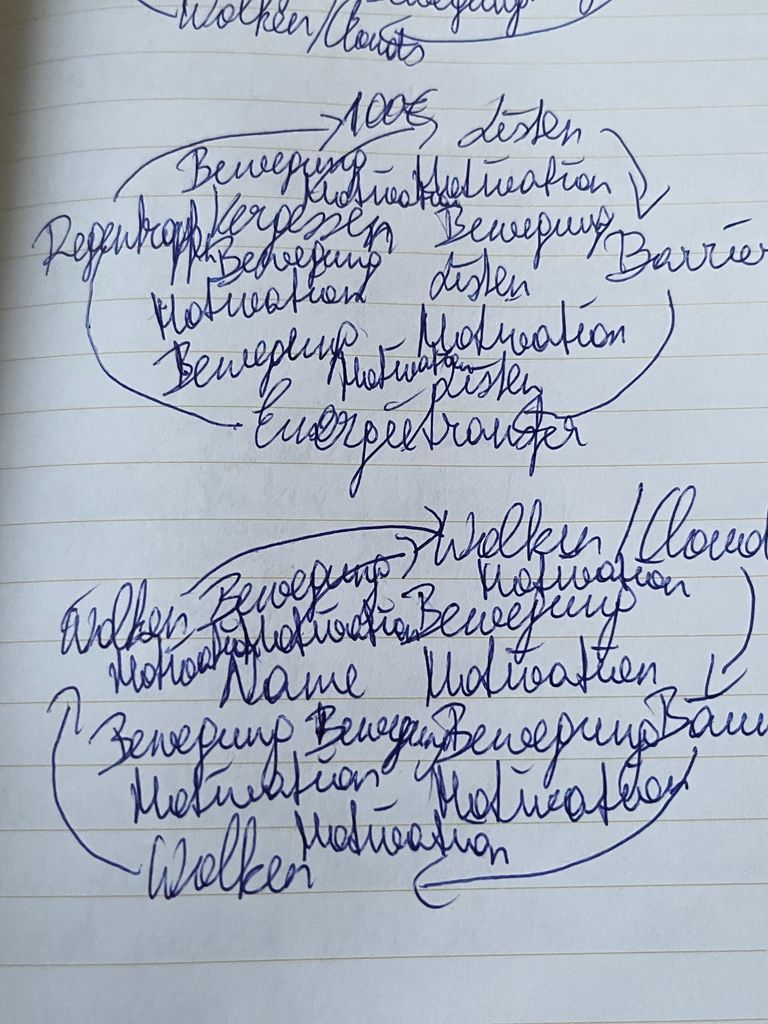 Wolken/Clouds
100€ Listen
Bewegung
Motivation Motivation
Vergessen Bewegung
Bewegung
Motivation Listen
Bewegung Motivation
Motivation Listen
Energietransfer
Wolken/Cloud
Bewegung Motivation
Wolken Bewegung
Motivation Motivation
Name Motivation
Bewegung Bewegung Bewegung
Motivation Motivation
Motivation
Wolken